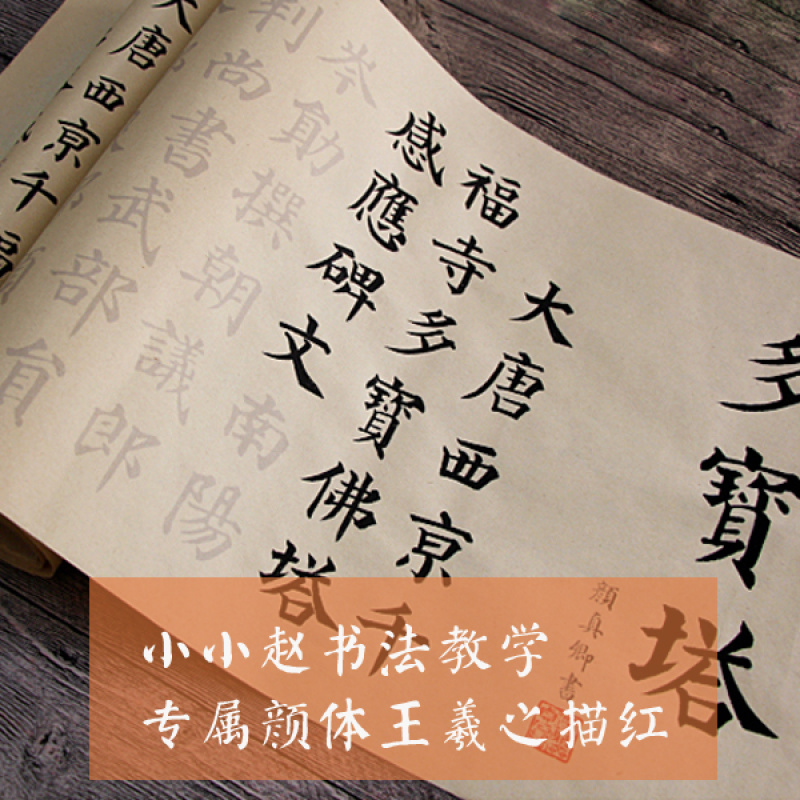 多寶塔
顏真卿書
大唐西京千
福寺多寶佛塔
感應碑文南陽
岑勛撰朝議郎
判尚書武部員
大唐西京千福
小小赵书法教学
专属颜体王羲之描红